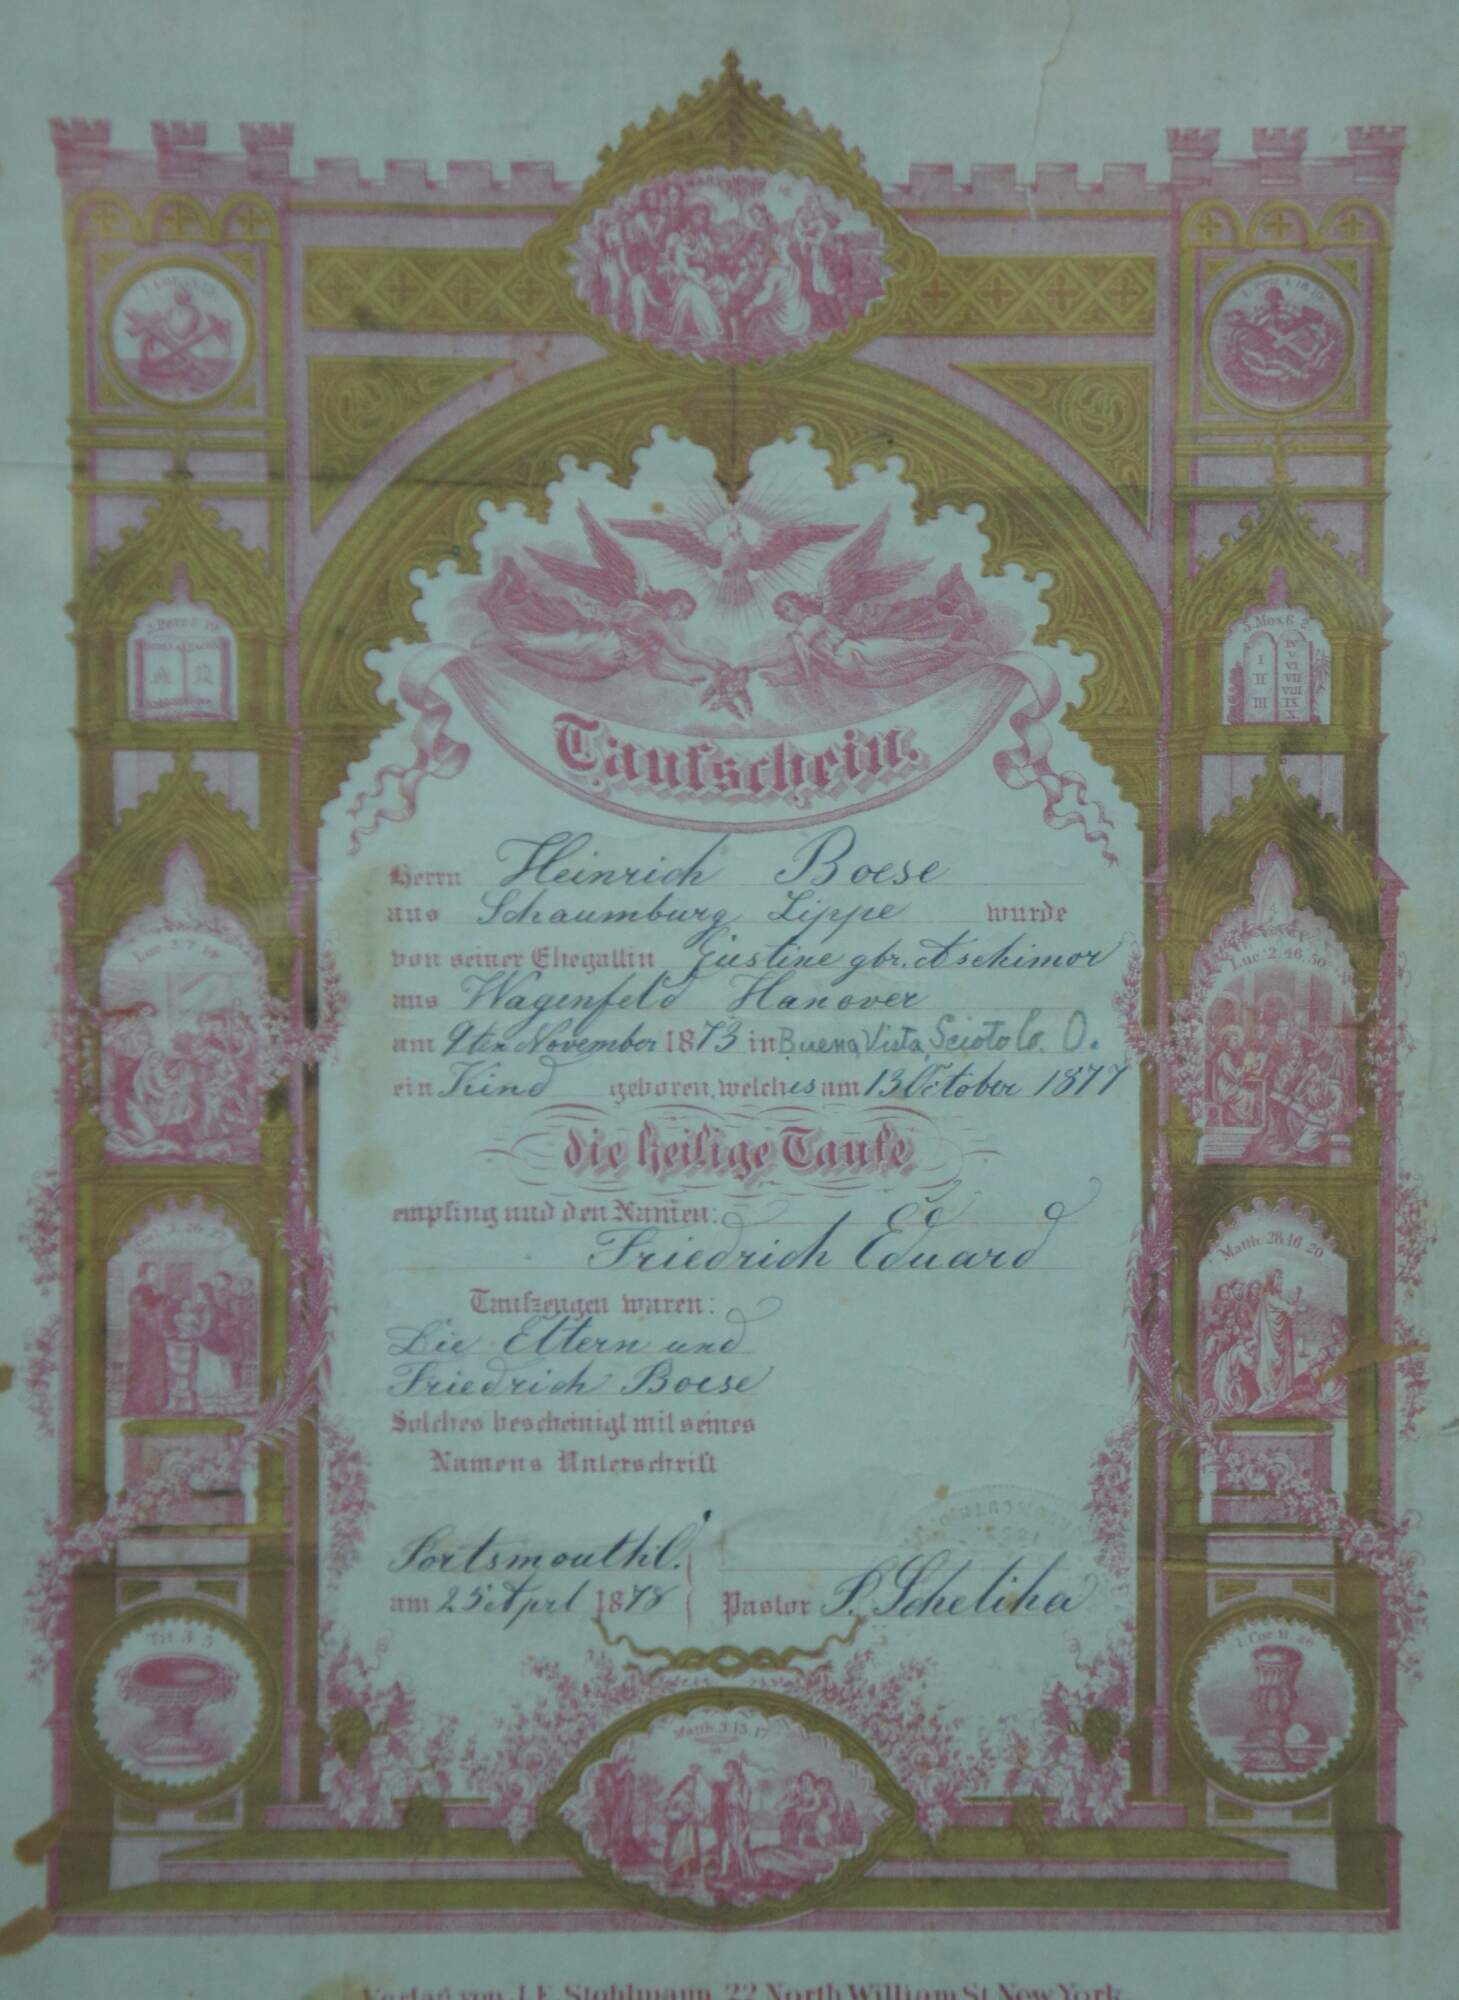 Marc. 10
Taufschein.
Herrn Heinrich Boese
aus Schaumburg Lippe wurde
von seiner Ehegattin Justine gbr. Aschimor
aus Wagenfeld Hanover
am 9ten November 1873 in Buena Vista, Scioto Co. O.
ein Kind geboren, welches am 13 October 1877
die heilige Taufe
empfing und den Namen:
Friedrich Eduard
Taufzeugen waren:
Die Eltern und
Friedrich Boese
Solches bescheinigt mit seines
Namens Unterschrift
Portsmouth
am 25 Aprl 1878
Pastor P. Scheliha
2. Petr. 1. 19
A Ω
5. Mos. 6 2
I II III
IV V VI VII VIII IX X
Luc. 2. 7
Luc: 2. 46. 50
Gal. 3. 26 27
Matth: 28. 16 20
Tit. 3 5
1 Cor. 11 26
Matth. 3. 13. 17
Verlag von J. E. Stohlmann, 22 North William St. New York.